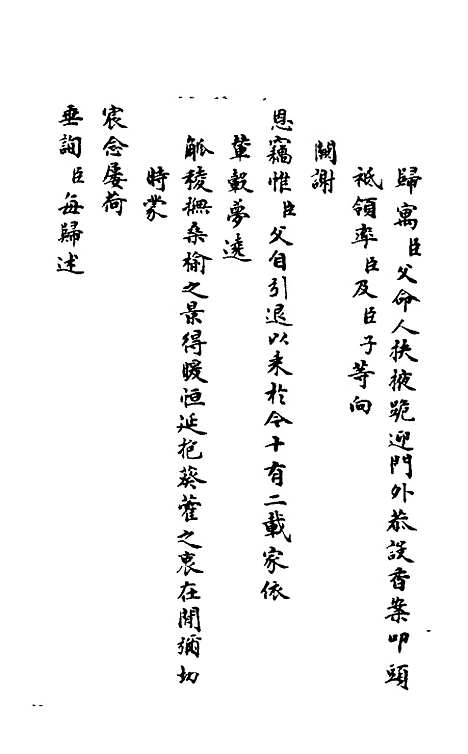 歸寓臣父命人扶掖跪迎門外恭設香案叩頭
祗領率臣及臣子等向
闕謝
恩竊惟臣父自引退以來於今十有二載家依
輦轂夢遶
觚稜撫桑榆之景得暖恒延抱葵藿之衷在閒彌切
時蒙
宸念屡荷
垂詢臣每歸述